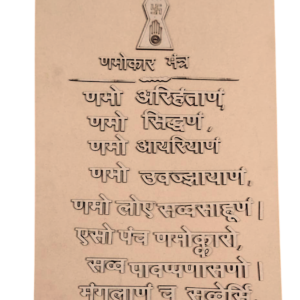 णमोकार मंत्र
णमो अरिहंताणं,
णमो सिद्धणं,
णमो आयरियाणं
णमो उवज्झायाणं,
णमो लोए सव्वसाहूणं।
एसो पंच णमोक्कारो,
सव्व पावप्पणासणो।
मंगलाणं च सव्वेसिं